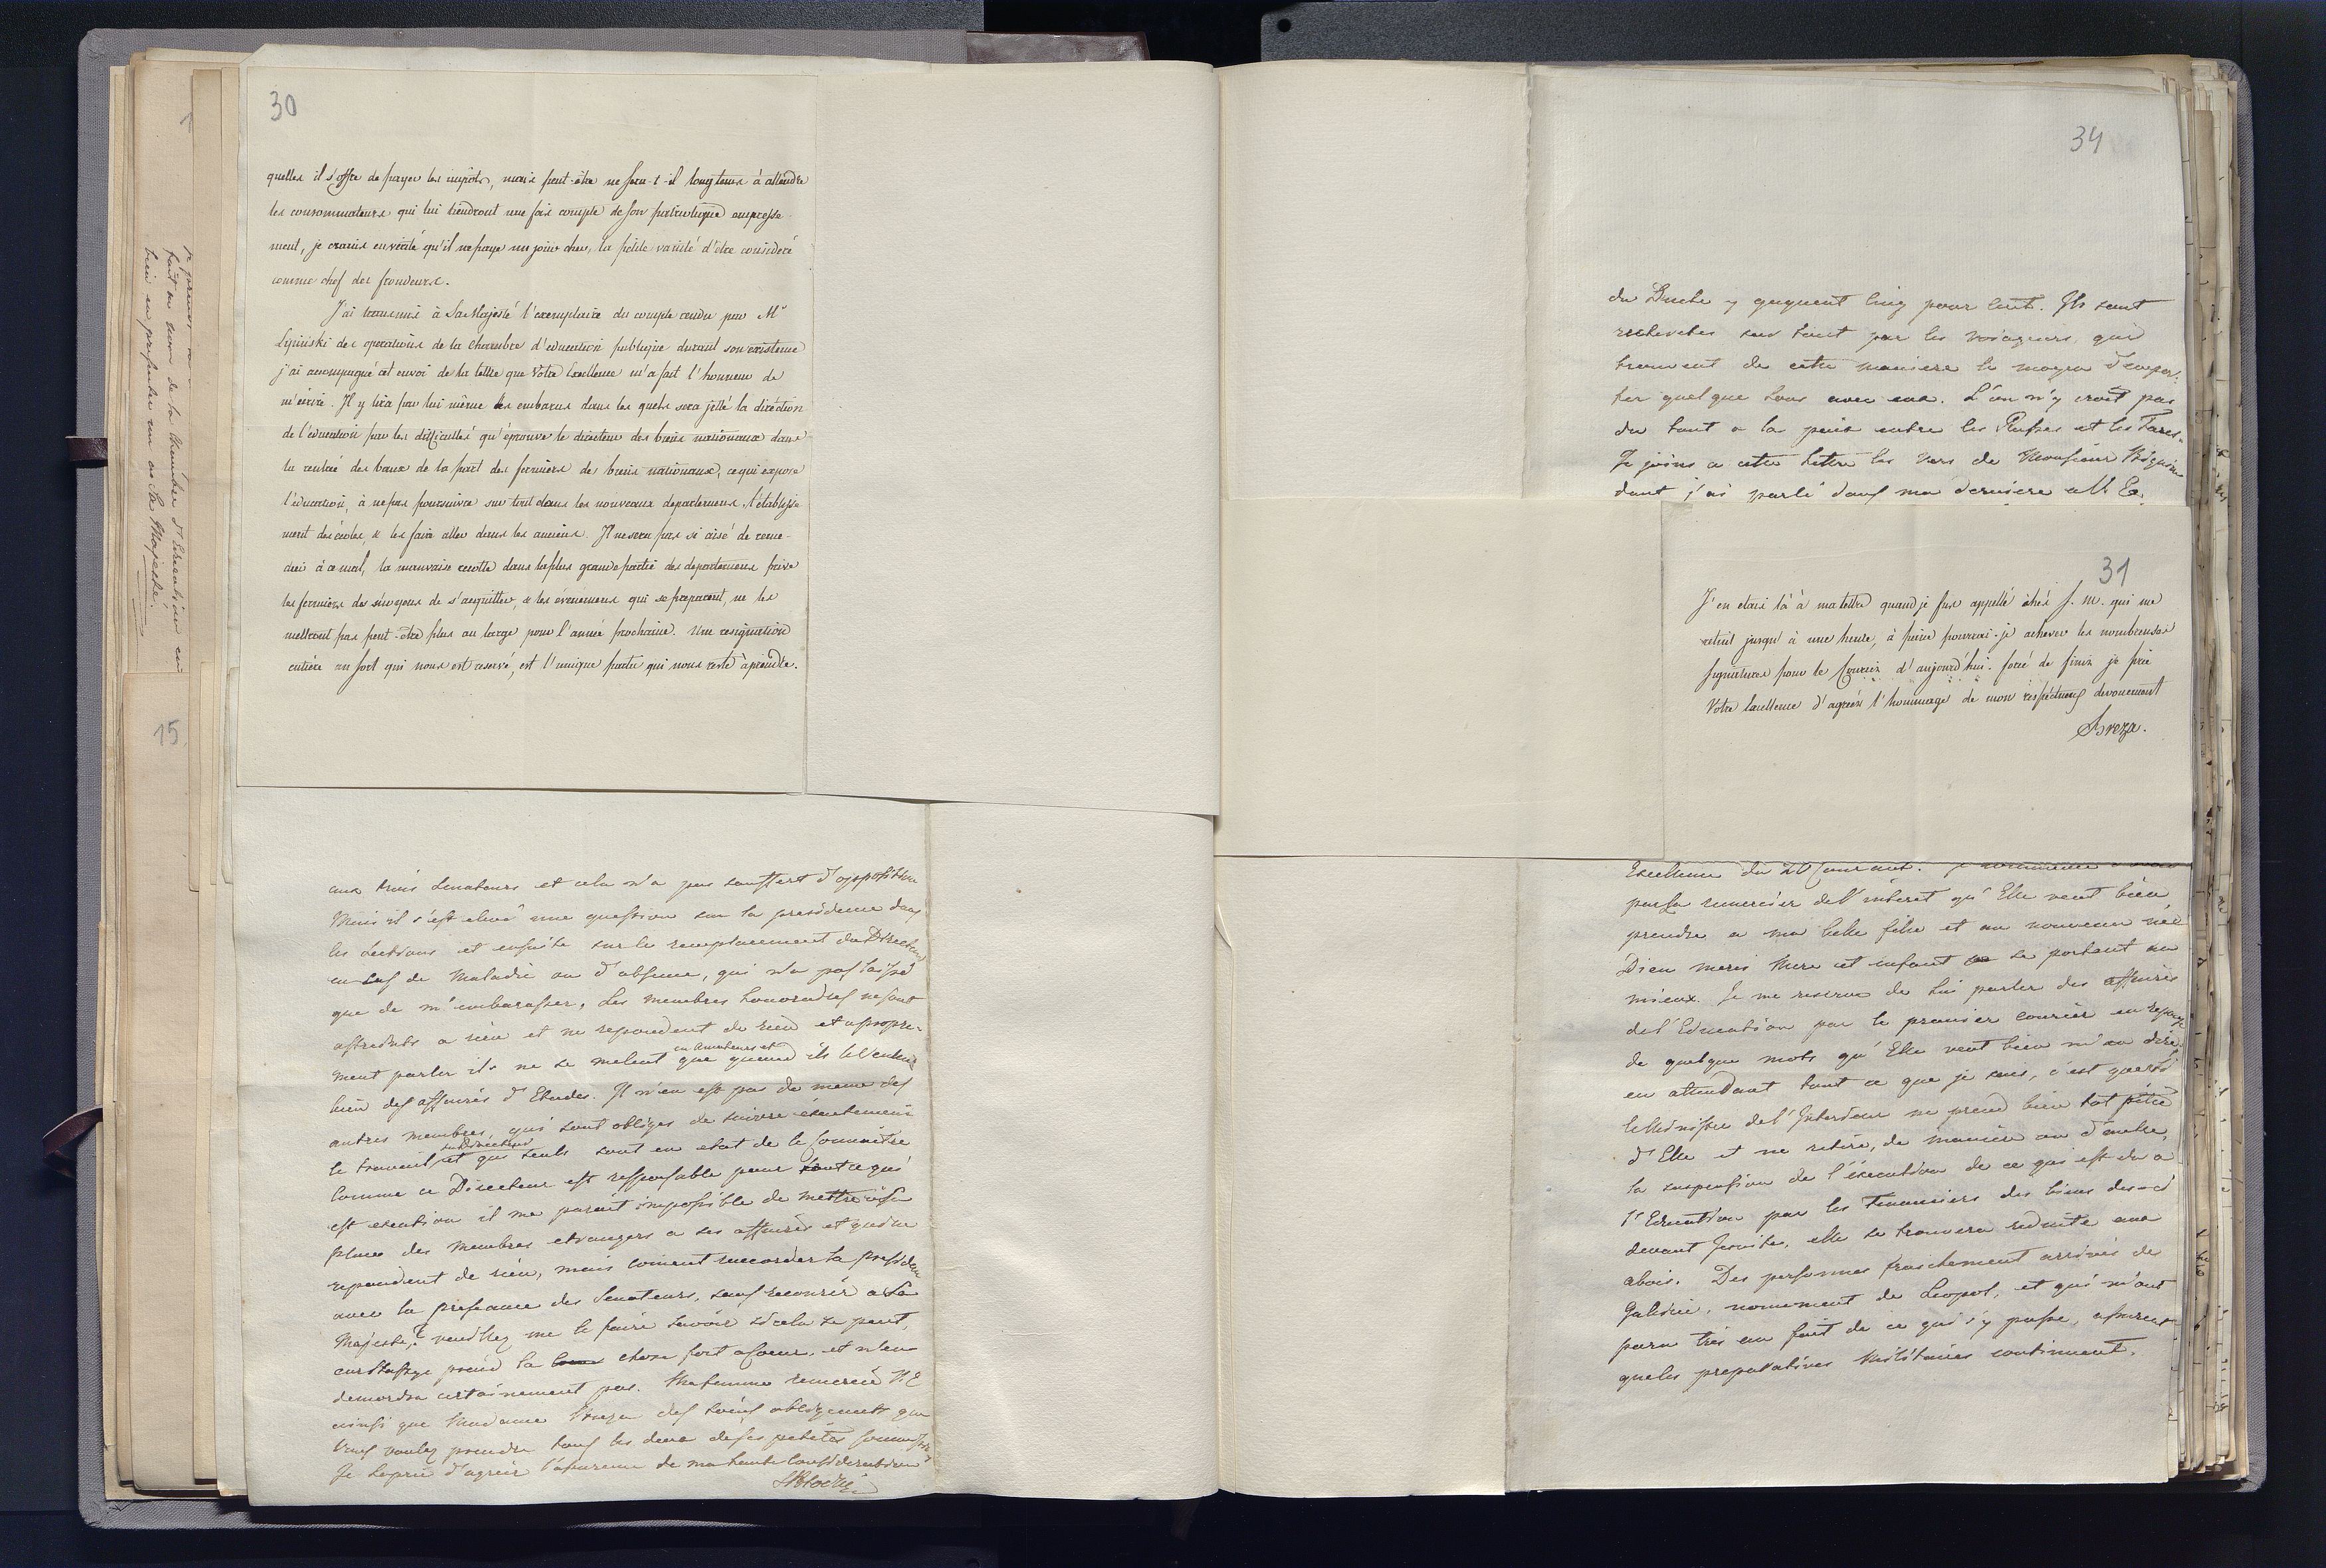 30
quelles il s'offre de payer les impots, mais peut-être ne sera-t-il longtems à attendre
les consommateurs qui lui tiendront une fois compte de son patriotique empresse-
ment, je crains en vérité qu'il ne paye un jour cher, la petite vanité d'etre consideré
comme chef des frondeurs.
J'ai transmis à Sa Majesté l'exemplaire du compte rendu par Mr
Lipinski des operations de la Chambre d'education publique durant son existence
j'ai accompagné cet envoi de la lettre que Votre Excellence m'a fait l'honneur de
m'écrire. Il y lira par lui même les embaras dans les quels sera jetté la diréction
de l'education par les difficultés qu'éprouve le directeur des biens nationaux dans
la rentrée des baux de la part des fermiers de biens nationaux, ce qui expose
l'education, à ne pas poursuivre sur tout dans les nouveaux departemens, l'établisse-
ment des écoles, & les faire aller dans les anciens. Il ne sera pas si aisé de reme-
dier à ce mal, la mauvaise recolte dans la plus grande partie des departemens prive
les fermiers des moyens de s'acquitter, & les évenemens qui se preparent, ne les
mettront pas peut-être plus au large pour l'année prochaine. Une resignation
entière au sort qui nous est reservé, est l'unique partie qui nous reste à prendre.
aux trois Senateurs et cela n'a pas souffert d'opposition
Mais il s'est elevé une question sur la presidence dans
les sections et ensuite sur le remplacement du Directeur
en cas de Maladie ou d'absence, qui n'a pas laissé
que de m'embarasser. Les membres honoraires ne sont
astreints a rien et ne repondent de rien et a propre-
ment parler ils ne se melent en Amateurs et que quand ils le veulent
bien des affaires d'Etudes. Il n'en est pas de meme des
autres membres, qui sont obligés de suivre éxactement
le travail du Directeur et qui seuls sont en etat de le connoitre
Comme ce Directeur est responsable pour tout ce qui
est execution il me parait impossible de mettre à sa
place des Membres etrangers a ses affaires et qui ne
repondent de rien, mais coment raccorder la presidence
avec la presseance des Senateurs, sauf recourir a Sa
Majesté? veuillez me le faire savoir si cela se peut,
car Staszyc prend la chose fort a Coeur, et n'en
demordra certainement pas. Ma femme remercie V. E
ainsi que Madame Breza des soins obligeants que
Vous voulez prendre tous les deux de ses petites
Je la prie d'agreer l'assurance de ma haute Consideration
15
fait au nom de la Chambre d'Education en
bien en presenter un à Sa Majesté.
34
du Duché y gagnent cinq pour cent. Ils sont
recherchés sur tout par les voiageurs qui
trouvent de cette maniere le moyen d'empor-
ter quelque sous avec eux. L'on n'y croit pas
du tout a la paix entre les Russes et les Turcs.
Je joins a cette lettre les vers de Monsieur
dont j'ai parlé dans ma derniere a V. Ex.
31
J'en etais là à ma lettre quand je fus appellé chés S. M. qui me
retint jusqu'à une heure, à peine pourrai-je achever les nombreuses
signatures pour le Courier d'aujourd'hui. forcé de finir je prie
Votre Excellence d'agréer l'hommage de mon respectueux devouement
Breza.
Excellence du 20 Courant. je commence
par La remercier de l'interet qu'Elle veut bien
prendre a ma belle fille et au nouveau né
Dieu merci Mere et enfant se portent au
mieux. Je me reserve de Lui parler des affaires
de l'Education par le premier courier en reponse
de quelque mots qu'Elle veut bien m'en dire
en attendant tout ce que je sais, c'est que si
le Ministre de l'Interieur ne prend bien tot pitié
d'Elle et ne retire, de maniere ou d'autre,
la suspension de l'éxecution de ce qui est du a
l'Education par les Financiers des biens des ci
devant Jesuites, elle se trouvera reduite aux
abois. Des personnes fraichement arrivées de
Galicie, nomement de Leopol, et qui m'ont
paru très au fait de ce qui s'y passe, assurent
que les preparatives Militaires continuent.